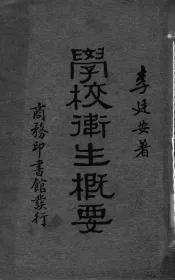 李廷安著
學校衛生概要
商務印書館發行